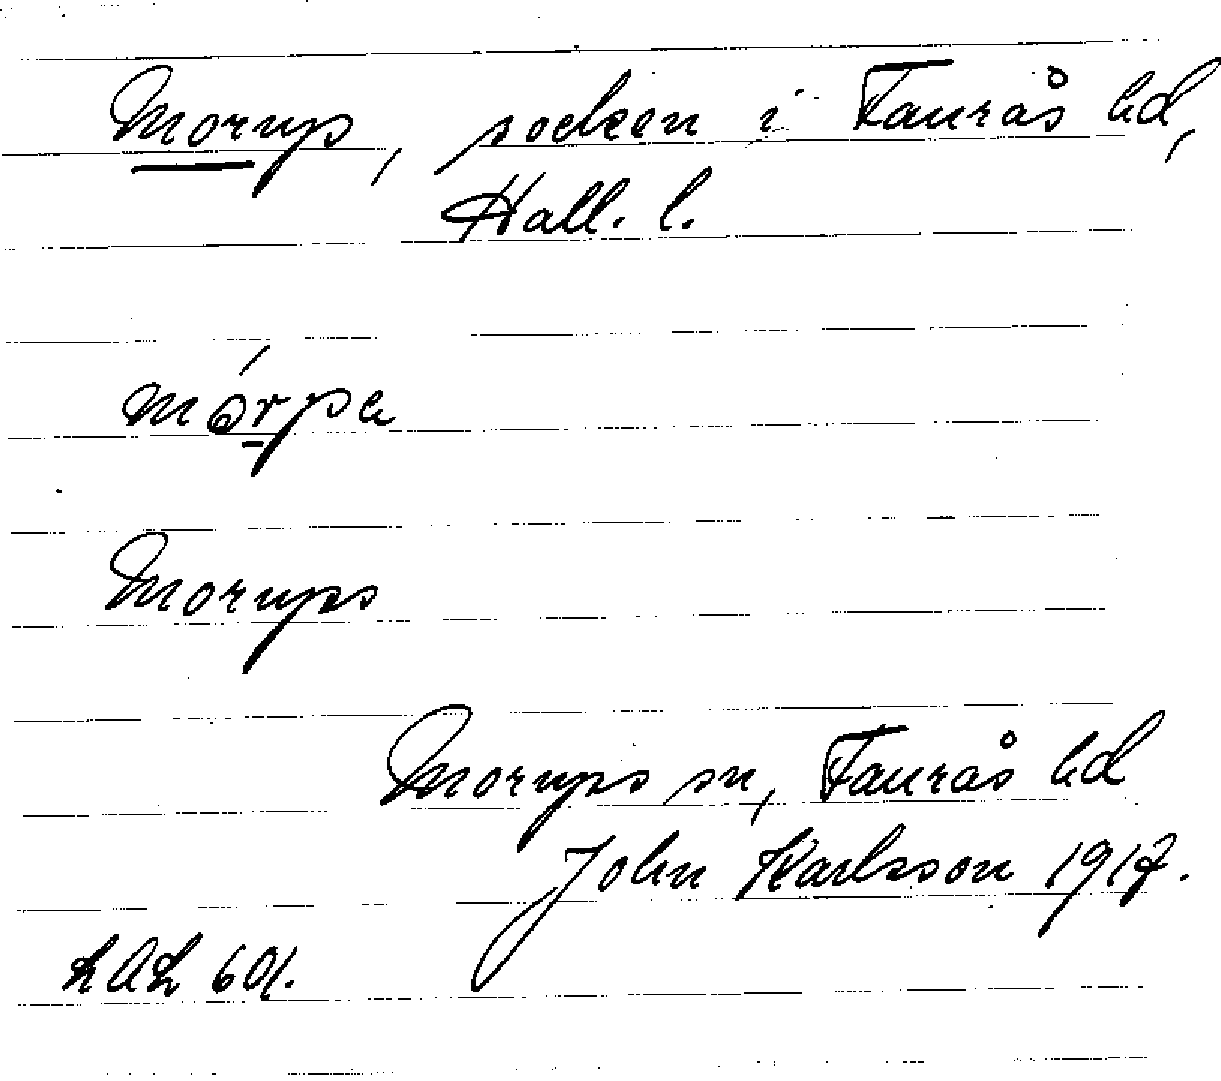 Morup, socken i Faurås hd,
Hall. l.
mórpa
Morups
Morups sn, Faurås hd
John Karlsson 1917.
LAL 601.